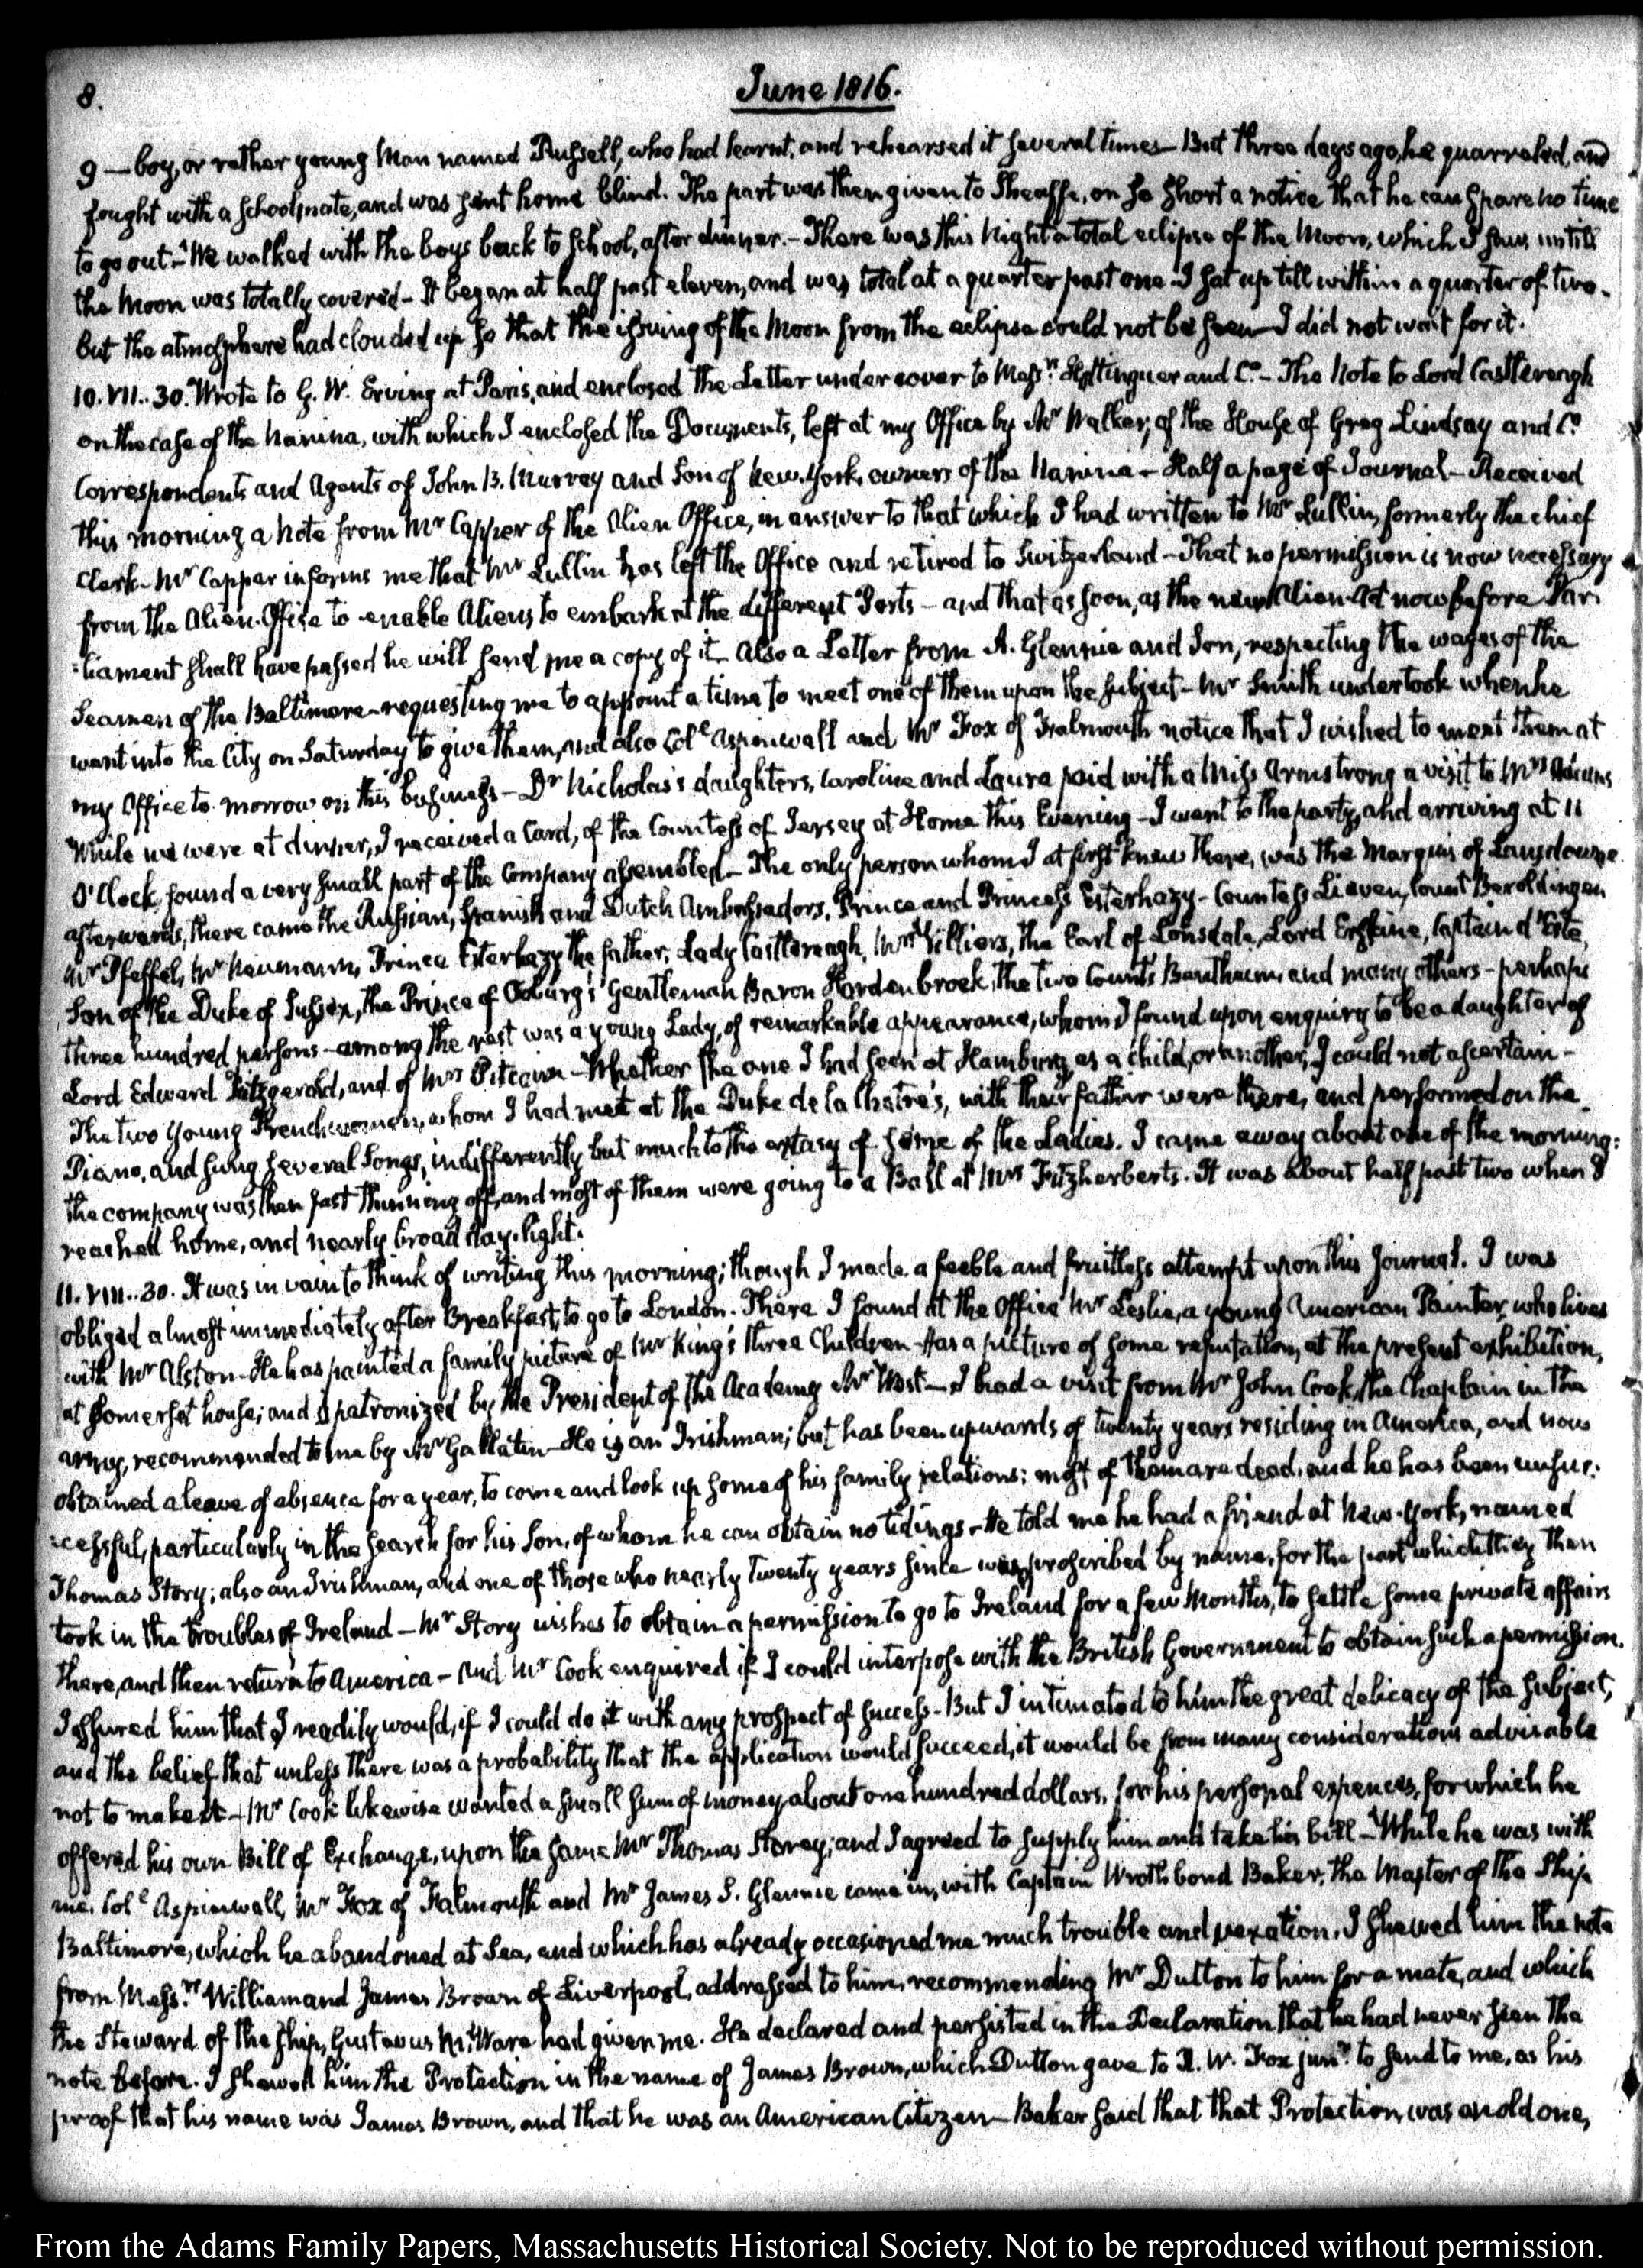 8.
June 1816.
9 — boy, or rather young Man named Russell, who had learnt, and rehearsed it several times — But three days ago, he quarreled, and
fought with a schoolmate, and was sent home blind. The part was then given to Sheaffe, on so short a notice that he can spare no time
to go out — We walked with the boys back to School, after dinner. — There was this Night a total eclipse of the Moon, which I saw untill
the Moon was totally covered — It began at half past eleven, and was total at a quarter past one — I sat up till within a quarter of two.
but the atmosphere had clouded up so that the issuing of the Moon from the eclipse could not be seen — I did not wait for it.
10. VII..30. Wrote to G. W. Erving at Paris, and enclosed the Letter under cover to Mess.rs Hottinguer and C.o — The Note to Lord Castlereagh
on the case of the Nanina, with which I enclosed the Documents, left at my Office by Mr Walker, of the House of Greg Lindsay and C.o
Correspondents and Agents of John B. Murray and Son of New-York, owners of the Nanina — Half a page of Journal — Received
this morning a Note from Mr Capper of the Alien Office, in answer to that which I had written to Mr Lullin, formerly the chief
Clerk — Mr Capper informs me that Mr Lullin has left the Office and retired to Switzerland — That no permission is now necessary
from the Alien-Office to enable Aliens to embark at the different Ports — and that as soon, as the new Alien-Act now before Par-
:liament shall have passed he will send me a copy of it — Also a Letter from A. Glennie and Son, respecting the wages of the
Seamen of the Baltimore — requesting me to appoint a time to meet one of them upon the subject — Mr Smith undertook when he
went into the City on Saturday to give them, and also Col.l Aspinwall and Mr Fox of Falmouth notice that I wished to meet them at
my Office to-morrow on this business — Dr Nicholas's daughters, Caroline and Laura paid with a Miss Armstrong a visit to Mrs Adams
While we were at dinner, I received a Card, of the Countess of Jersey at Home this Evening — I went to the party, and arriving at 11
O'Clock, found a very small part of the Company assembled — The only person whom I at first knew there, was the Marquis of Lansdowne
afterwards, there came the Russian, Spanish and Dutch Ambassadors, Prince and Princess Esterhazy — Countess Lieven, Count Beroldingen
Mr Pfeffel, Mr Neumann, Prince Esterhazy the father, Lady Castlereagh, Mrs Villiers, the Earl of Lonsdale, Lord Erskine, Captain d'Este,
Son of the Duke of Sussex, the Prince of Coburg's Gentleman Baron Hardenbroek, the two Counts Bentheim, and many others — perhaps
three hundred persons — among the rest was a young Lady, of remarkable appearance, whom I found upon enquiry to be a daughter of
Lord Edward Fitzgerald, and of Mrs Pitcairn — Whether the one I had seen at Hamburg, as a child, or another, I could not ascertain —
The two young Frenchwomen, whom I had met at the Duke de la Chatre's, with their father were there, and performed on the
Piano, and sung several Songs, indifferently but much to the extasy of some of the Ladies. I came away about one of the morning:
the company was then fast thinning off, and most of them were going to a Ball at Mrs Fitzherberts. It was about half past two when I
reached home, and nearly broad day-light.
11. VIII..30. It was in vain to think of writing this morning; though I made a feeble and fruitless attempt upon this Journal. I was
obliged almost immediately after Breakfast, to go to London. There I found at the Office Mr Leslie, a young American Painter, who lives
with Mr Alston — He has painted a family picture of Mr King's three Children — Has a picture of some reputation, at the present exhibition,
at Somerset house; and is patronized by the President of the Academy Mr West — I had a visit from Mr John Cook, the Chaplain in the
army, recommended to me by Mr Gallatin — He is an Irishman; but has been upwards of twenty years residing in America, and now
obtained a leave of absence for a year, to come and look up some of his family relations; most of them are dead, and he has been unsuc:
:cessful, particularly in the search for his Son, of whom he can obtain no tidings — He told me he had a friend at New-York, named
Thomas Story; also an Irishman, and one of those who nearly twenty years since was proscribed by name, for the part which they then
took in the troubles of Ireland — Mr Story wishes to obtain a permission to go to Ireland for a few Months, to settle some private affairs
there, and then return to America — And Mr Cook enquired if I could interpose with the British Government to obtain such a permission.
I assured him that I readily would, if I could do it with any prospect of success — But I intimated to him the great delicacy of the subject,
and the belief that unless there was a probability that the application would succeed, it would be from many considerations advisable
not to make it — Mr Cook likewise wanted a small sum of money, about one hundred dollars, for his personal expences, for which he
offered his own Bill of Exchange, upon the same Mr Thomas Storey; and I agreed to supply him and take his bill — While he was with
me, Col.l Aspinwall, Mr Fox of Falmouth and Mr James S. Glennie came in, with Captain Wrothbond Baker, the Master of the Ship
Baltimore, which he abandoned at Sea, and which has already occasioned me much trouble and vexation. I shewed him the note
from Mess.rs William and James Brown of Liverpool, addressed to him, recommending Mr Dutton to him for a mate, and which
the Steward of the ship, Gustavus Ware had given me. He declared and persisted in the Declaration that he had never seen the
note before. I shewed him the Protection in the name of James Brown, which Dutton gave to R. W. Fox junr. to send to me, as his
proof that his name was James Brown, and that he was an American Citizen — Baker said that that Protection, was an old one,
From the Adams Family Papers, Massachusetts Historical Society. Not to be reproduced without permission.